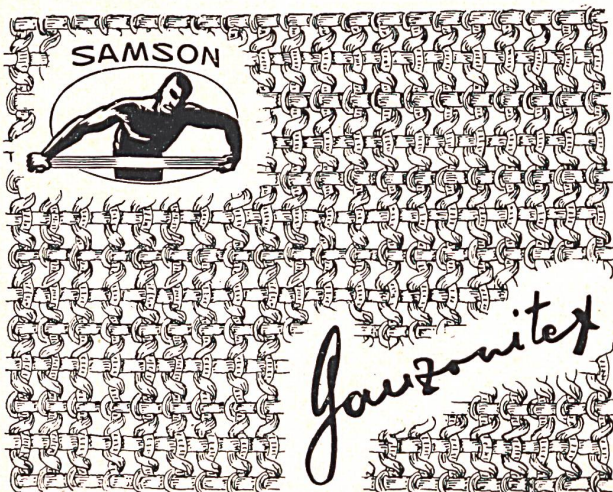 SAMSON
Gauzonitex